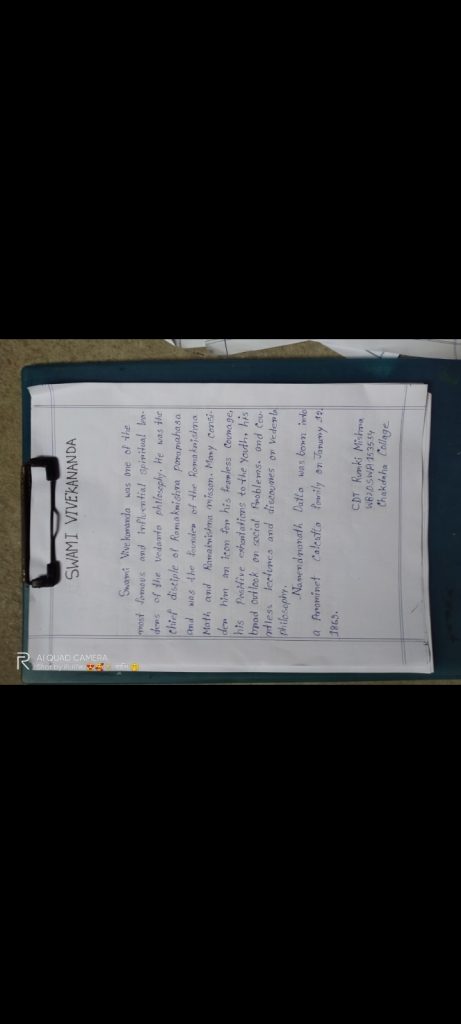 SWAMI VIVEKANANDA
Swami Vivekananda was one of the
most famous and influential spiritual lea-
ders of the vedanta philosophy. He was the
Chief disciple of Ramakrishna paramahasa
and was the founder of the Ramakrishna
Math and Ramakrishna misson. Many consi-
der him an icon for his fearless courage,
his Positive exhortations to the youth, his
broad outlook on social Problems. and Cou-
ntless lectures and discourses on Vedenta
philosophy.
Narendranath Datta was born into
a prominet Calcutta family on January 12,
1863.
CDT Rumki Mishra
Chakdaha Collage
R AI QUAD CAMERA
Shot by